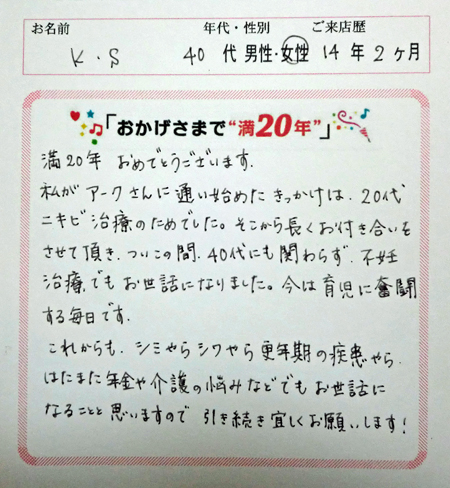 お名前 年代・性別 ご来店歴
K.S 40代 男性・女性 14年2ヶ月
「おかげさまで“満20年”」
満20年 おめでとうございます.
私がアークさんに通い始めたきっかけは、20代
ニキビ治療のためでした。そこから長くお付き合いを
させて頂き、ついこの間、40代にも関わらず、不妊
治療でもお世話になりました。今は育児に奮闘
する毎日です.
これからも、シミやらシワやら更年期の疾患やら、
はたまた年金や介護の悩みなどでもお世話に
なることと思いますので 引き続き宜しくお願いします!